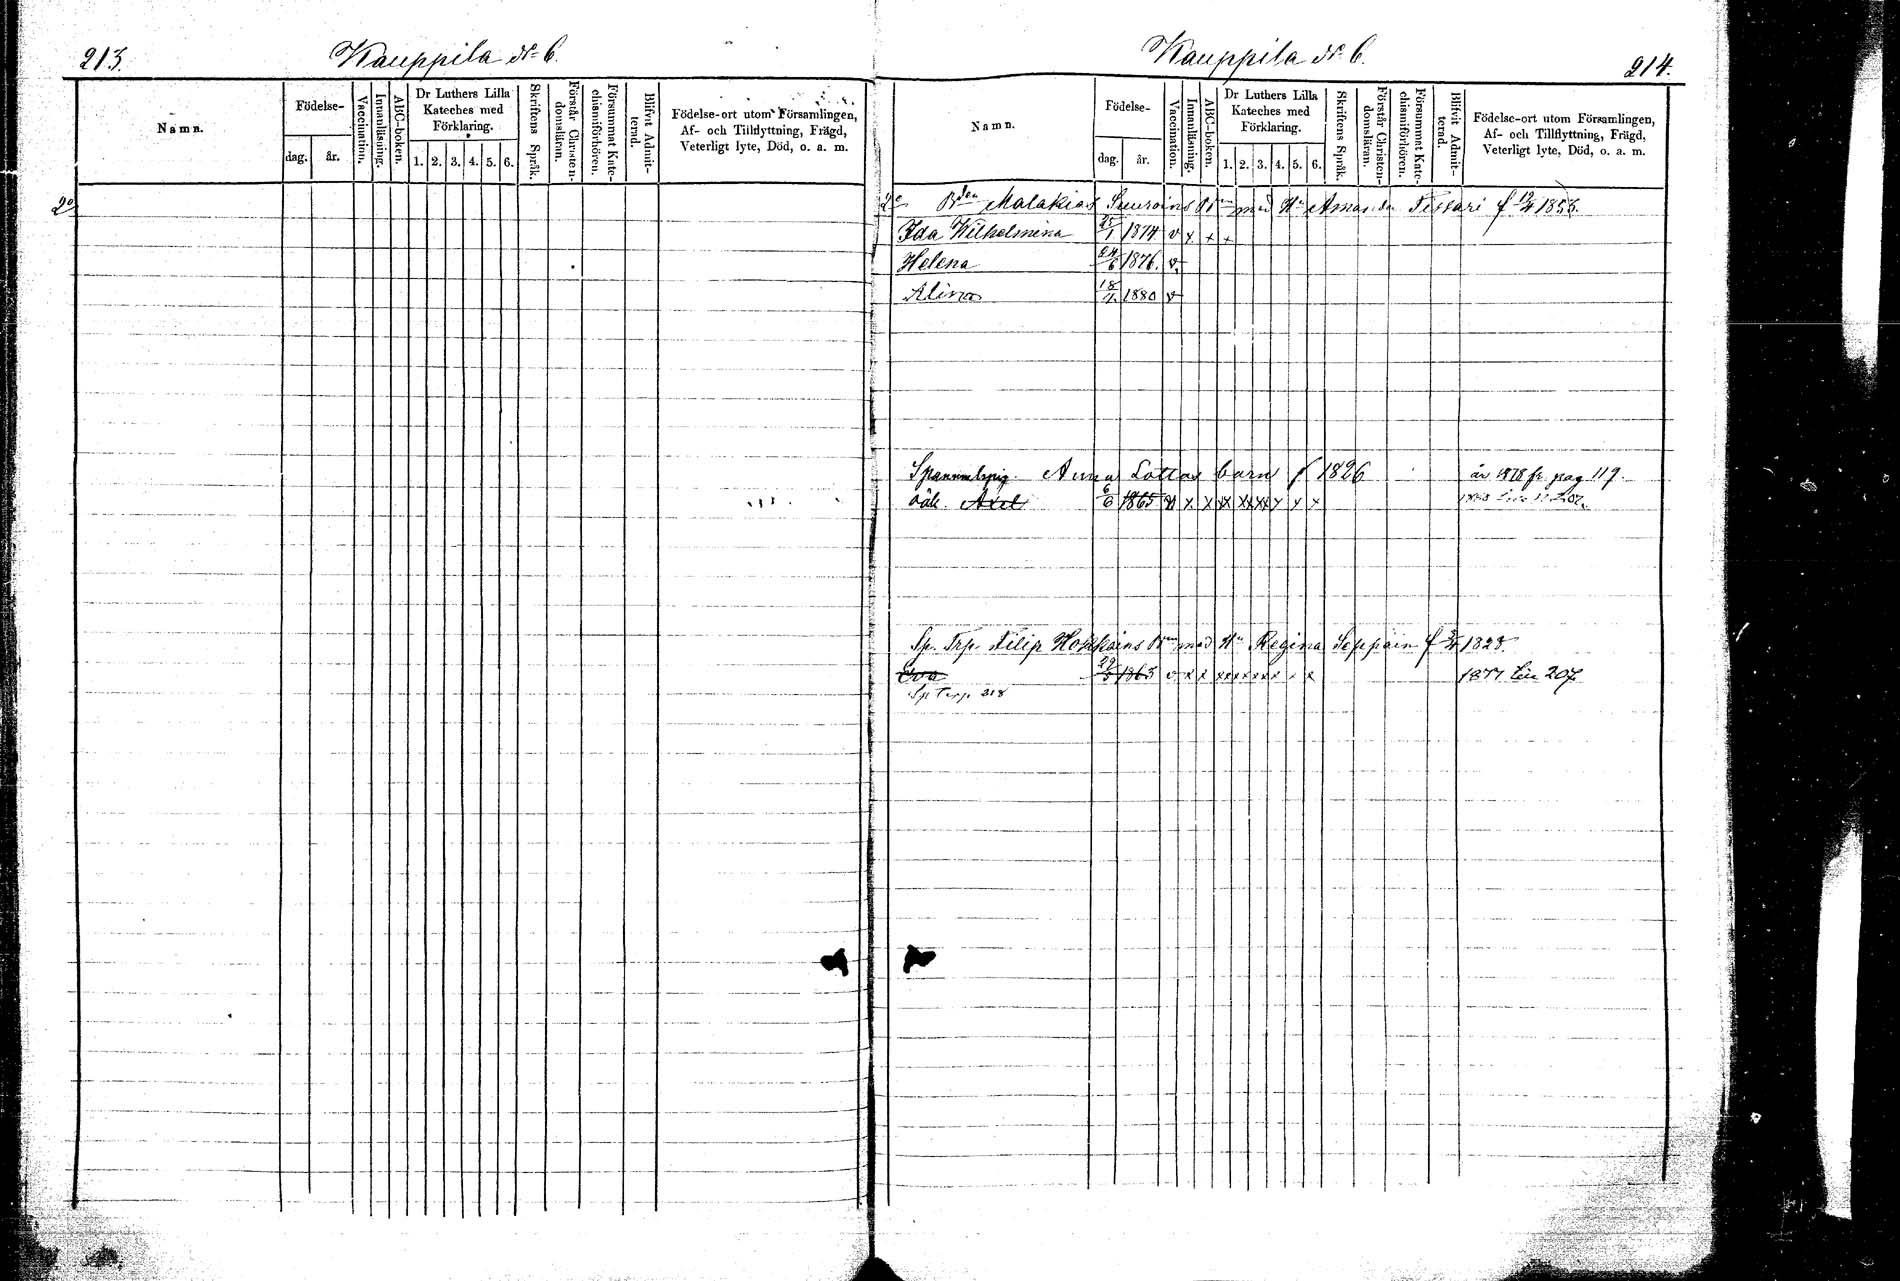 213.
Kauppila N:o 6.
Namn.
Födelse-
dag.
år.
Vaccination.
Innanläsning.
ABC-boken.
Dr Luthers Lilla Kateches med Förklaring.
1. 2. 3. 4. 5. 6.
Skriftens Språk.
Förstår Christendomsläran.
Försummat Katechismiförhören.
Blifvit Admitterad.
Födelse-ort utom Församlingen, Af- och Tillflyttning, Frägd, Veterligt lyte, Död, o. a. m.
2o
Kauppila N:o 6.
214.
Namn.
Födelse-
dag.
år.
Vaccination.
Innanläsning.
ABC-boken.
Dr Luthers Lilla Kateches med Förklaring.
1. 2. 3. 4. 5. 6.
Skriftens Språk.
Förstår Christendomsläran.
Försummat Katechismiförhören.
Blifvit Admitterad.
Födelse-ort utom Församlingen, Af- och Tillflyttning, Frägd, Veterligt lyte, Död, o. a. m.
2o Bden Malakias Suuroins med Hu Amanda Tissari f 1856.
Ida Wilhelmina 25/1 1874 v x x x
Helena 24/6 1876. v.
Alina 18/7. 1880 v
Anna Lottas barn f 1826 år 1878 fr pag 119.
oäk. Axel 6/6 1865 v x x x x x x x x x
Sp. Trp. Filip Hokkoins med Hu Regina Seppäin f 1828.
Eva 29/5 1863 v x x x x x x x x x x 1877 Liu 207
Sp Torp 218